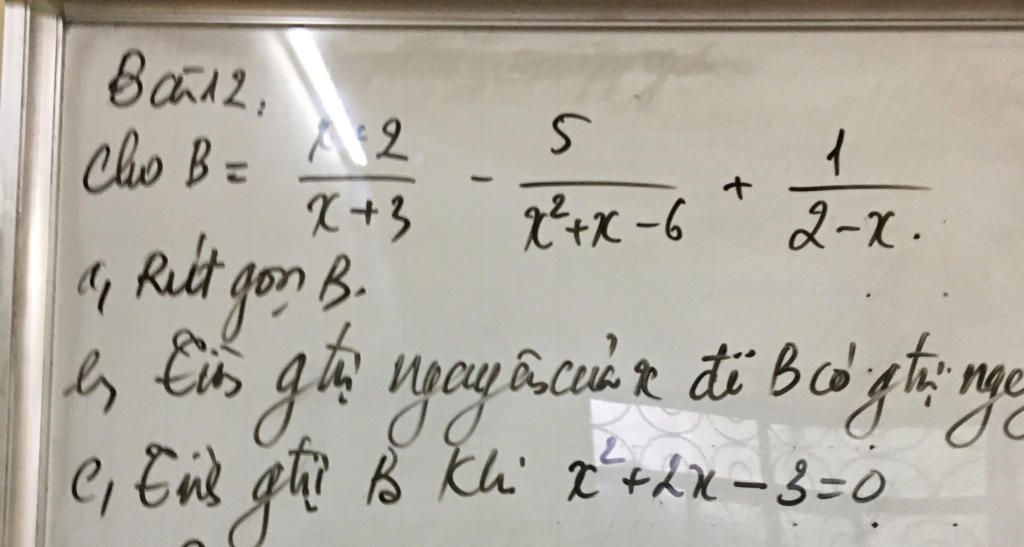 Bài 12:
Cho B = \frac{x+2}{x+3} - \frac{5}{x^2+x-6} + \frac{1}{2-x}.
a, Rút gọn B.
b, Tìm gtrị nguyên của x để B có gtrị
c, Tìm gtrị B khi x^2+2x-3=0